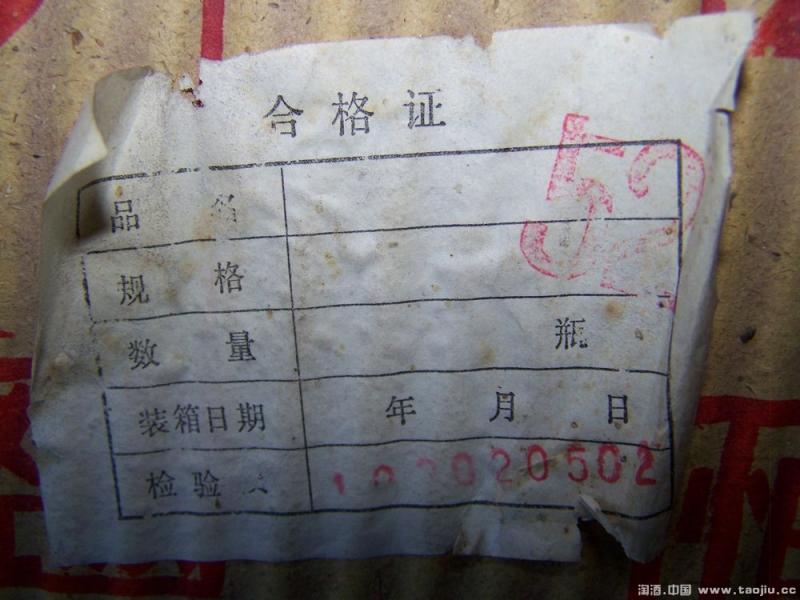 合格证
52
品 名
规 格
数 量 瓶
装箱日期 年 月 日
检验 20502
淘酒.中国 www.taojiu.cc